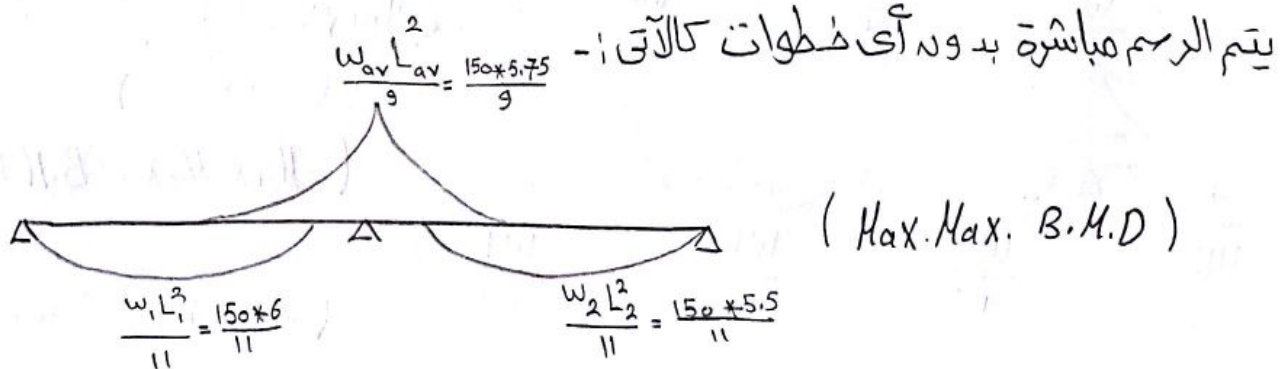 يتم الرسم مباشرة بدون أى خطوات كالآتى :-
W_av L_av^2 / 9 = 150*5.75 / 9
( Max.Max. B.M.D )
W_1 L_1^2 / 11 = 150*6 / 11
W_2 L_2^2 / 11 = 150*5.5 / 11